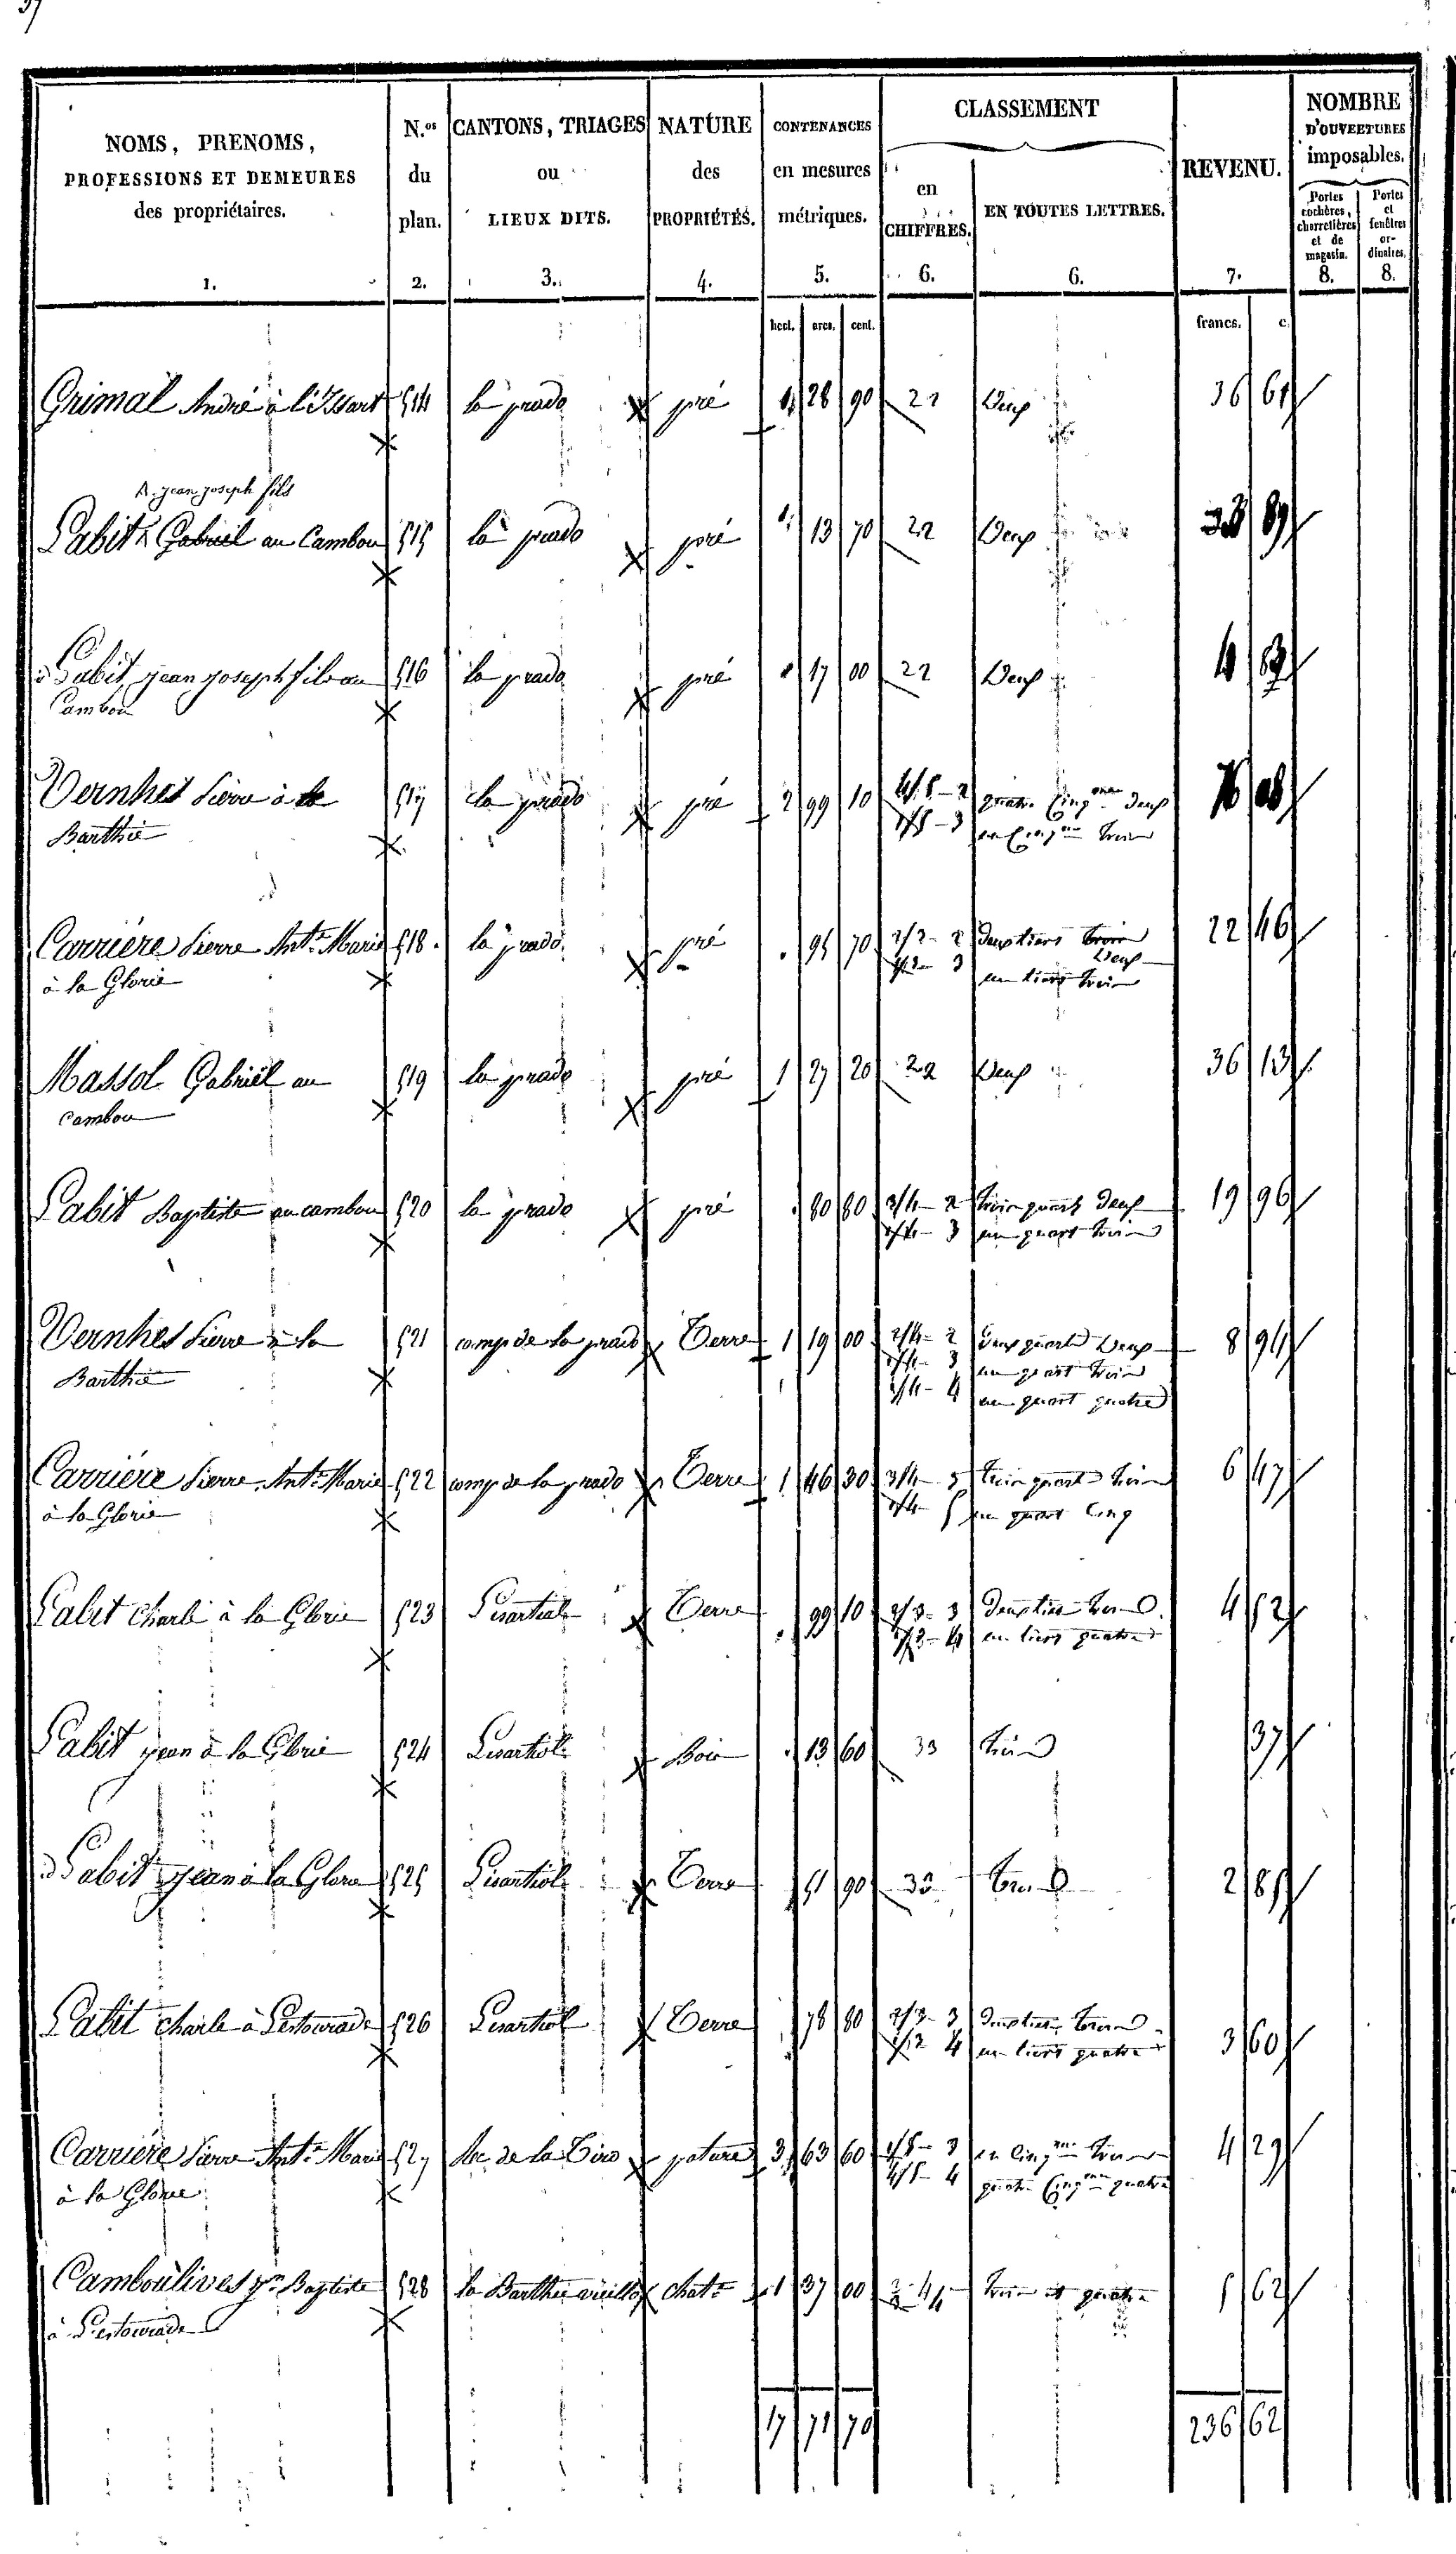 37
NOMS, PRENOMS,
PROFESSIONS ET DEMEURES
des propriétaires.
1.
N.os
du
plan.
2.
CANTONS, TRIAGES
ou
LIEUX DITS.
3.
NATURE
des
PROPRIÉTÉS.
4.
CONTENANCES
en mesures
métriques.
5.
CLASSEMENT
en
CHIFFRES.
6.
EN TOUTES LETTRES.
6.
REVENU.
7.
NOMBRE
D'OUVERTURES
imposables.
Portes
cochères,
charretières
et de
magasin.
8.
Portes
et
fenêtres
or-
dinaires.
8.
hect. ares. cent. francs. c.
Grimal André à 514 la prade pré 1 28 90 2 Deux 36 61
jean joseph fils
Pabit Gabriel au Cambou 515 la prade pré 1 13 70 2 Deux
Pabit jean joseph fils au 516 la prade pré 17 00 2 Deux 4
Cambou
Vernhet Pierre à la 517 la prade pré 2 99 10 4/5 - 2 quatre Cinq deux
Barthe 1/5 - 3 un trois
Carrière Pierre Ant.e Marie 518 la prade pré 95 70 2/3 - 2 deux tiers trois 22 46
Deux
à la Glorie 1/3 - 3 un tiers trois
Massol Gabriel au 519 la prade pré 1 27 20 2 Deux 36 13
Cambou
Pabit Baptiste au cambou 520 la prade pré 80 80 3/4 - 2 trois quarts deux 19 96
1/4 - 3 un quart trois
Vernhet Pierre à la 521 camp de la prade Terre 1 19 00 2/4 - 2 deux quarts Deux 8 94
Barthe 1/4 - 3 un quart trois
1/4 - 4 un quart quatre
Carrière Pierre Ant.e Marie 522 camp de la prade Terre 1 46 30 3/4 - 3 trois quarts trois 6 47
à la Glorie 1/4 5 un quart Cinq
Pabit Charle à la Glorie 523 Terre 99 10 2/3 - 3 Deux tiers trois 4 52
1/3 - 4 un tiers quatre
Pabit jean à la Glorie 524 Bois 13 60 3 trois 37
Pabit jean à la Glorie 525 Terre 51 90 3 trois 2 85
Pabit Charle à Pestourade 526 Terre 78 80 2/3 - 3 Deux tiers trois 3 60
1/3 4 un tiers quatre
Carrière Pierre Ant.e Marie 527 de la pature 3 63 60 1/5 - 3 un Cinq trois 4 29
à la Glorie 4/5 - 4 quatre Cinq quatre
Camboulives Jn Baptiste 528 la Barthe vieille chat.e 1 37 00 3 4 trois et quatre 5 62
à Pestourade
17 71 70 236 62